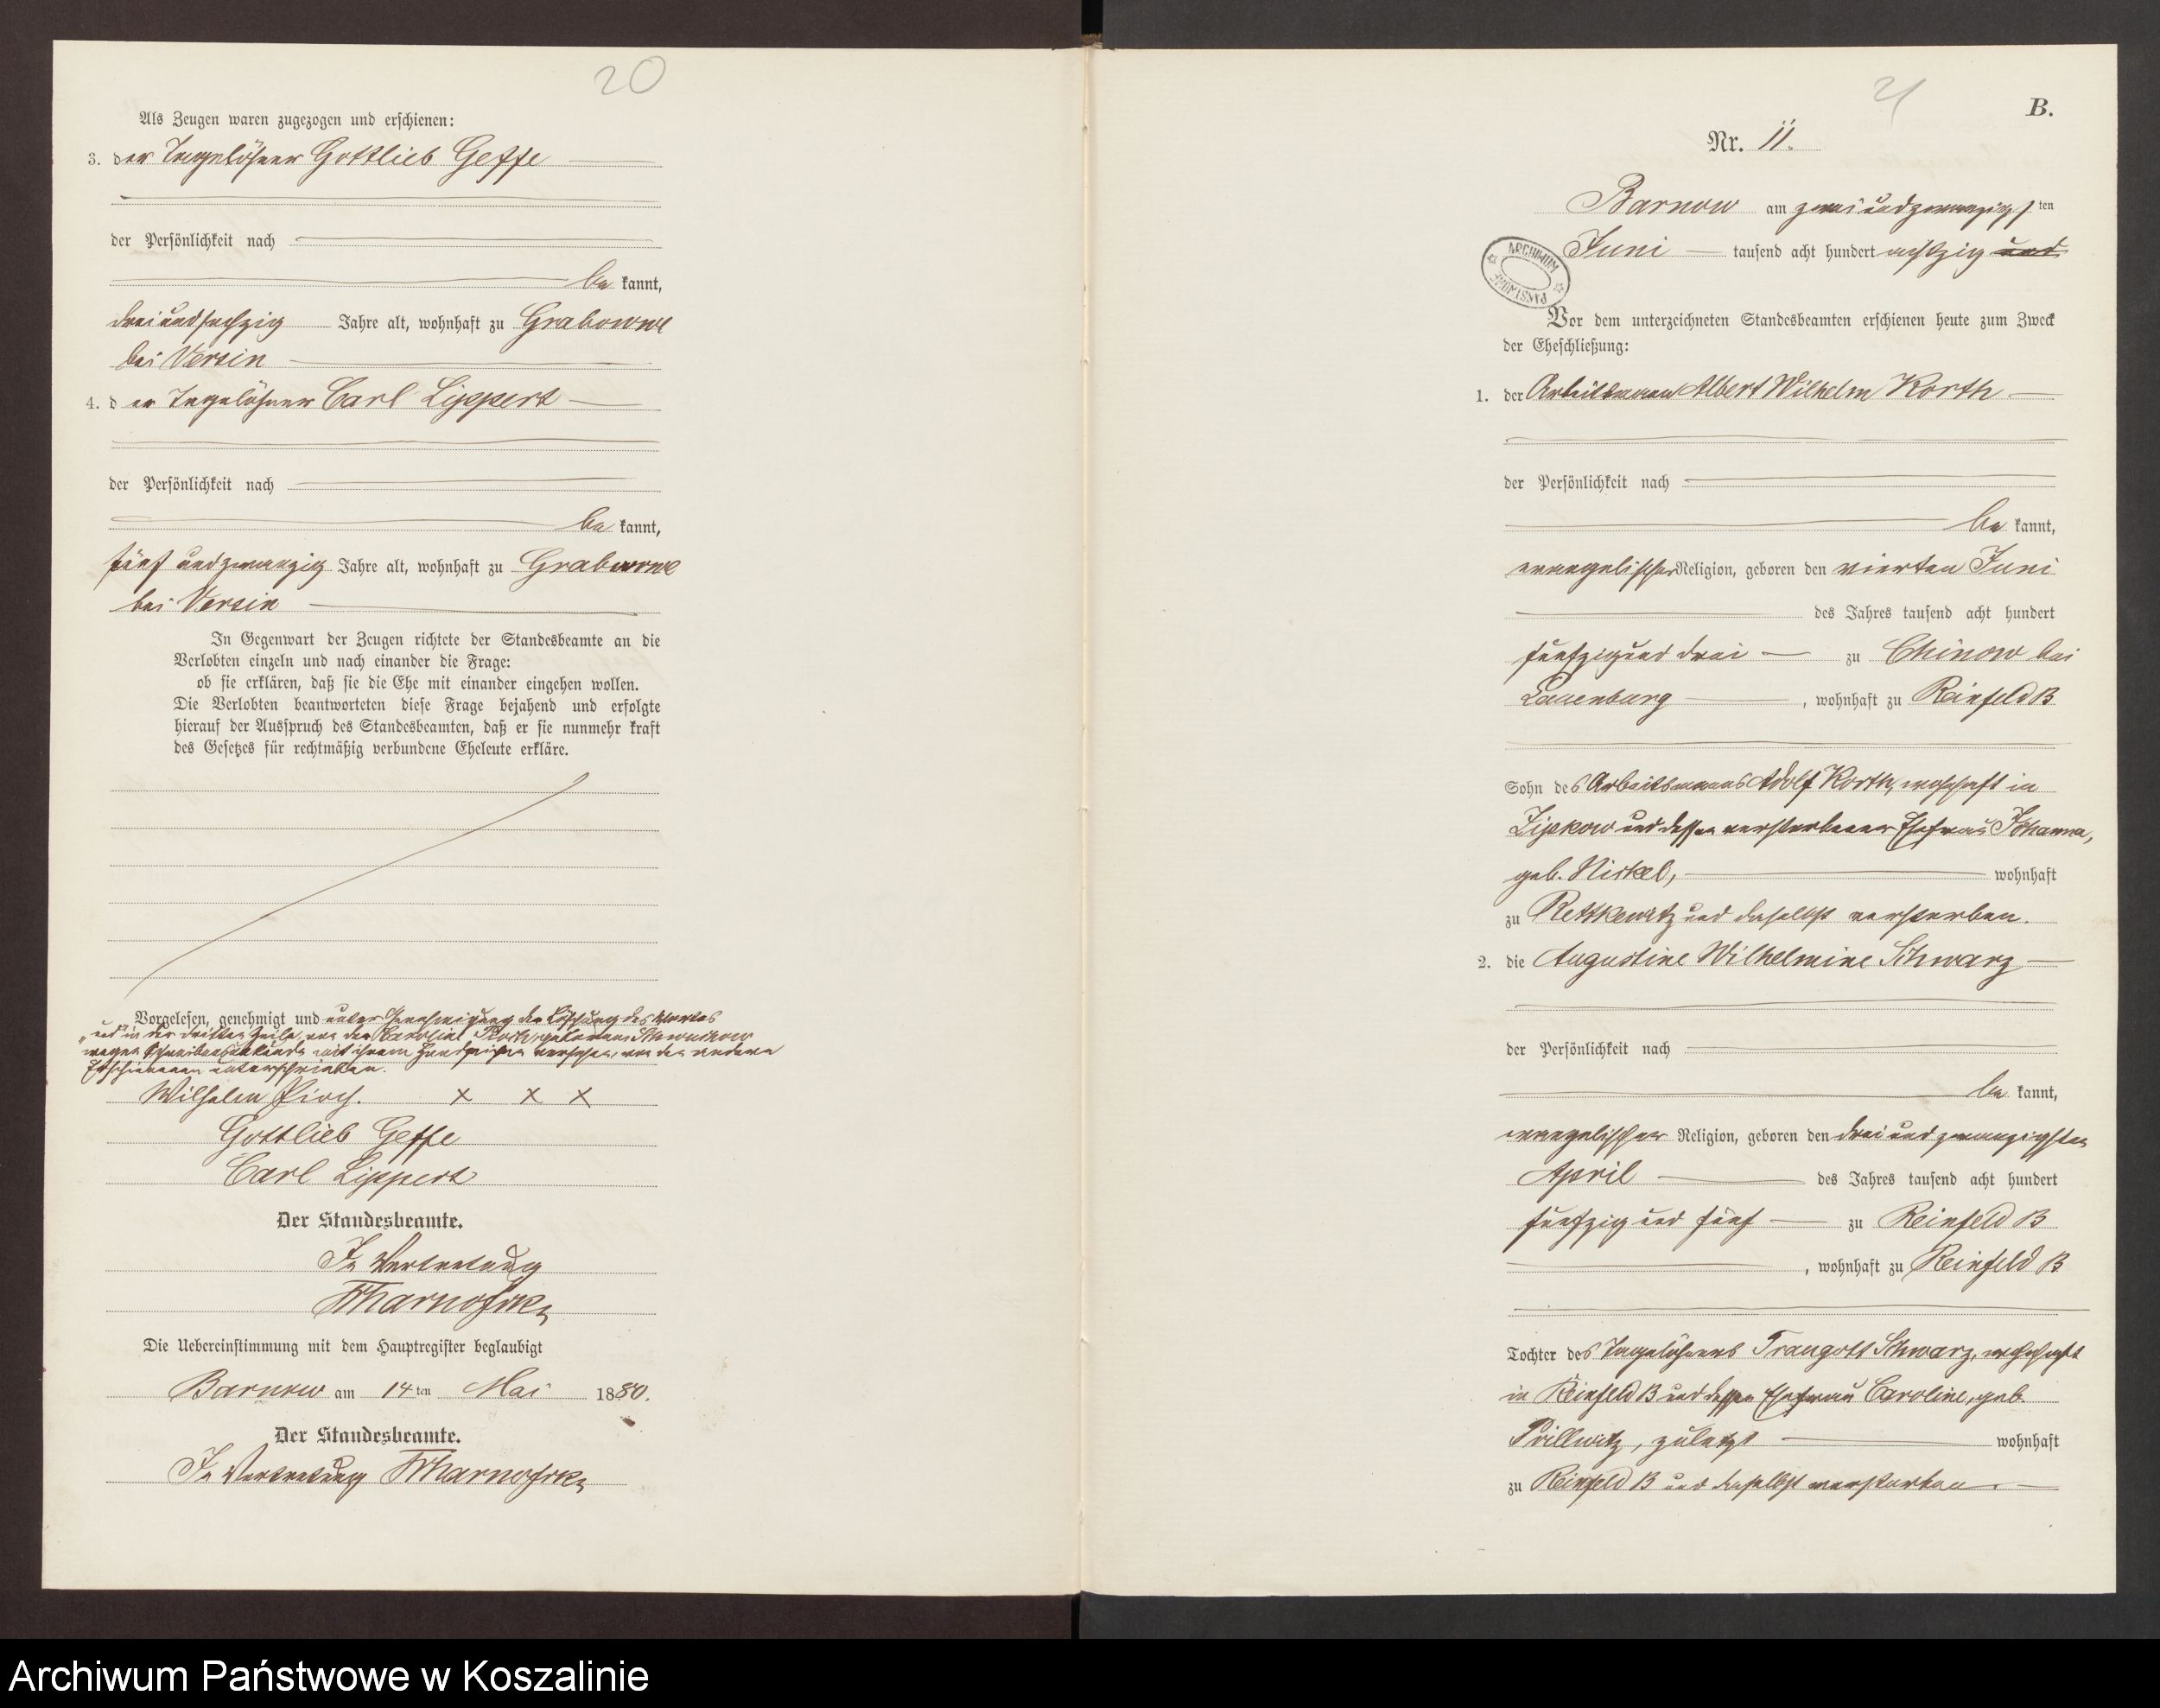 20
Als Zeugen waren zugezogen und erschienen:
3. der Tagelöhner Gottlieb Geffe
der Persönlichkeit nach
be kannt,
dreiundsechzig Jahre alt, wohnhaft zu Grabowwe
bei Versin
4. der Tagelöhner Carl Lippert
der Persönlichkeit nach
be kannt,
fünf und zwanzig Jahre alt, wohnhaft zu Grabowwe
bei Versin
In Gegenwart der Zeugen richtete der Standesbeamte an die
Verlobten einzeln und nach einander die Frage:
ob sie erklären, daß sie die Ehe mit einander eingehen wollen.
Die Verlobten beantworteten diese Frage bejahend und erfolgte
hierauf der Ausspruch des Standesbeamten, daß er sie nunmehr kraft
des Gesetzes für rechtmäßig verbundene Eheleute erkläre.
Vorgelesen, genehmigt und unter Genehmigung der Löschung des Wortes
„und" in der dritten Zeile, von der Caroline geborene
wegen Schreibensunkunde mit ihrem Handzeichen versehen, von den andern
Erschienenen unterschrieben.
Wilhelm Pioch. x x x
Gottlieb Geffe
Carl Lippert
Der Standesbeamte.
In Vertretung
Die Uebereinstimmung mit dem Hauptregister beglaubigt
Barnow am 14ten Mai 1880.
Der Standesbeamte.
In Vertretung
21
B.
Nr. 11.
Barnow am zweiundzwanzigsten
Juni tausend acht hundert achtzig und
ARCHIWUM PAŃSTWOWE
Vor dem unterzeichneten Standesbeamten erschienen heute zum Zweck
der Eheschließung:
1. der Arbeitsmann Albert Wilhelm Korth
der Persönlichkeit nach
be kannt,
evangelischer Religion, geboren den vierten Juni
des Jahres tausend acht hundert
fünfzig und drei zu Chinow bei
Lauenburg, wohnhaft zu Reinfeld B
Sohn des Arbeitsmanns Adolf Korth, wohnhaft in
Zipkow und dessen verstorbener Ehefrau Johanna,
geb. Nickel, wohnhaft
zu Rettkewitz und daselbst verstorben.
2. die Augustine Wilhelmine Schwarz
der Persönlichkeit nach
be kannt,
evangelischer Religion, geboren den drei und zwanzigsten
April des Jahres tausend acht hundert
fünfzig und fünf zu Reinfeld B
, wohnhaft zu Reinfeld B
Tochter des Tagelöhners Traugott Schwarz, wohnhaft
in Reinfeld B und dessen Ehefrau Caroline, geb.
Prillwitz, zuletzt wohnhaft
zu Reinfeld B und daselbst verstorben.
Archiwum Państwowe w Koszalinie